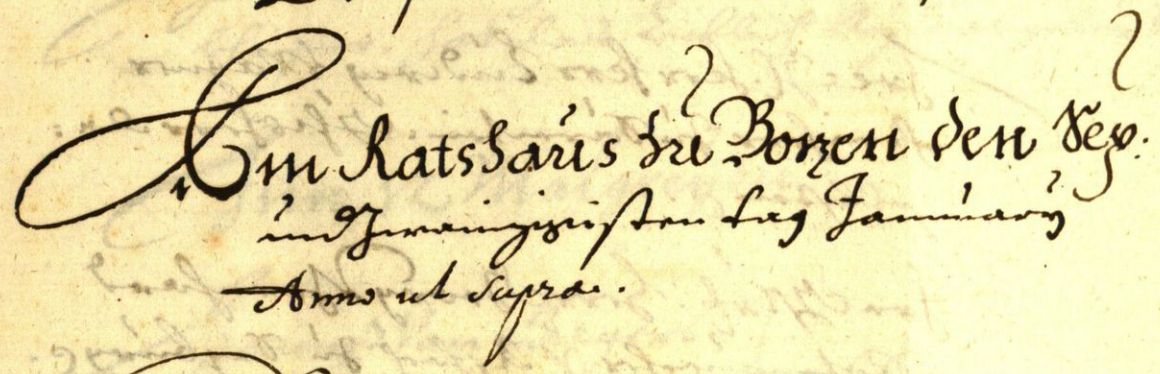 Am Ratshaus zu Bozen den Sex:
und Zwainzigisten tag January
Anno ut supra.